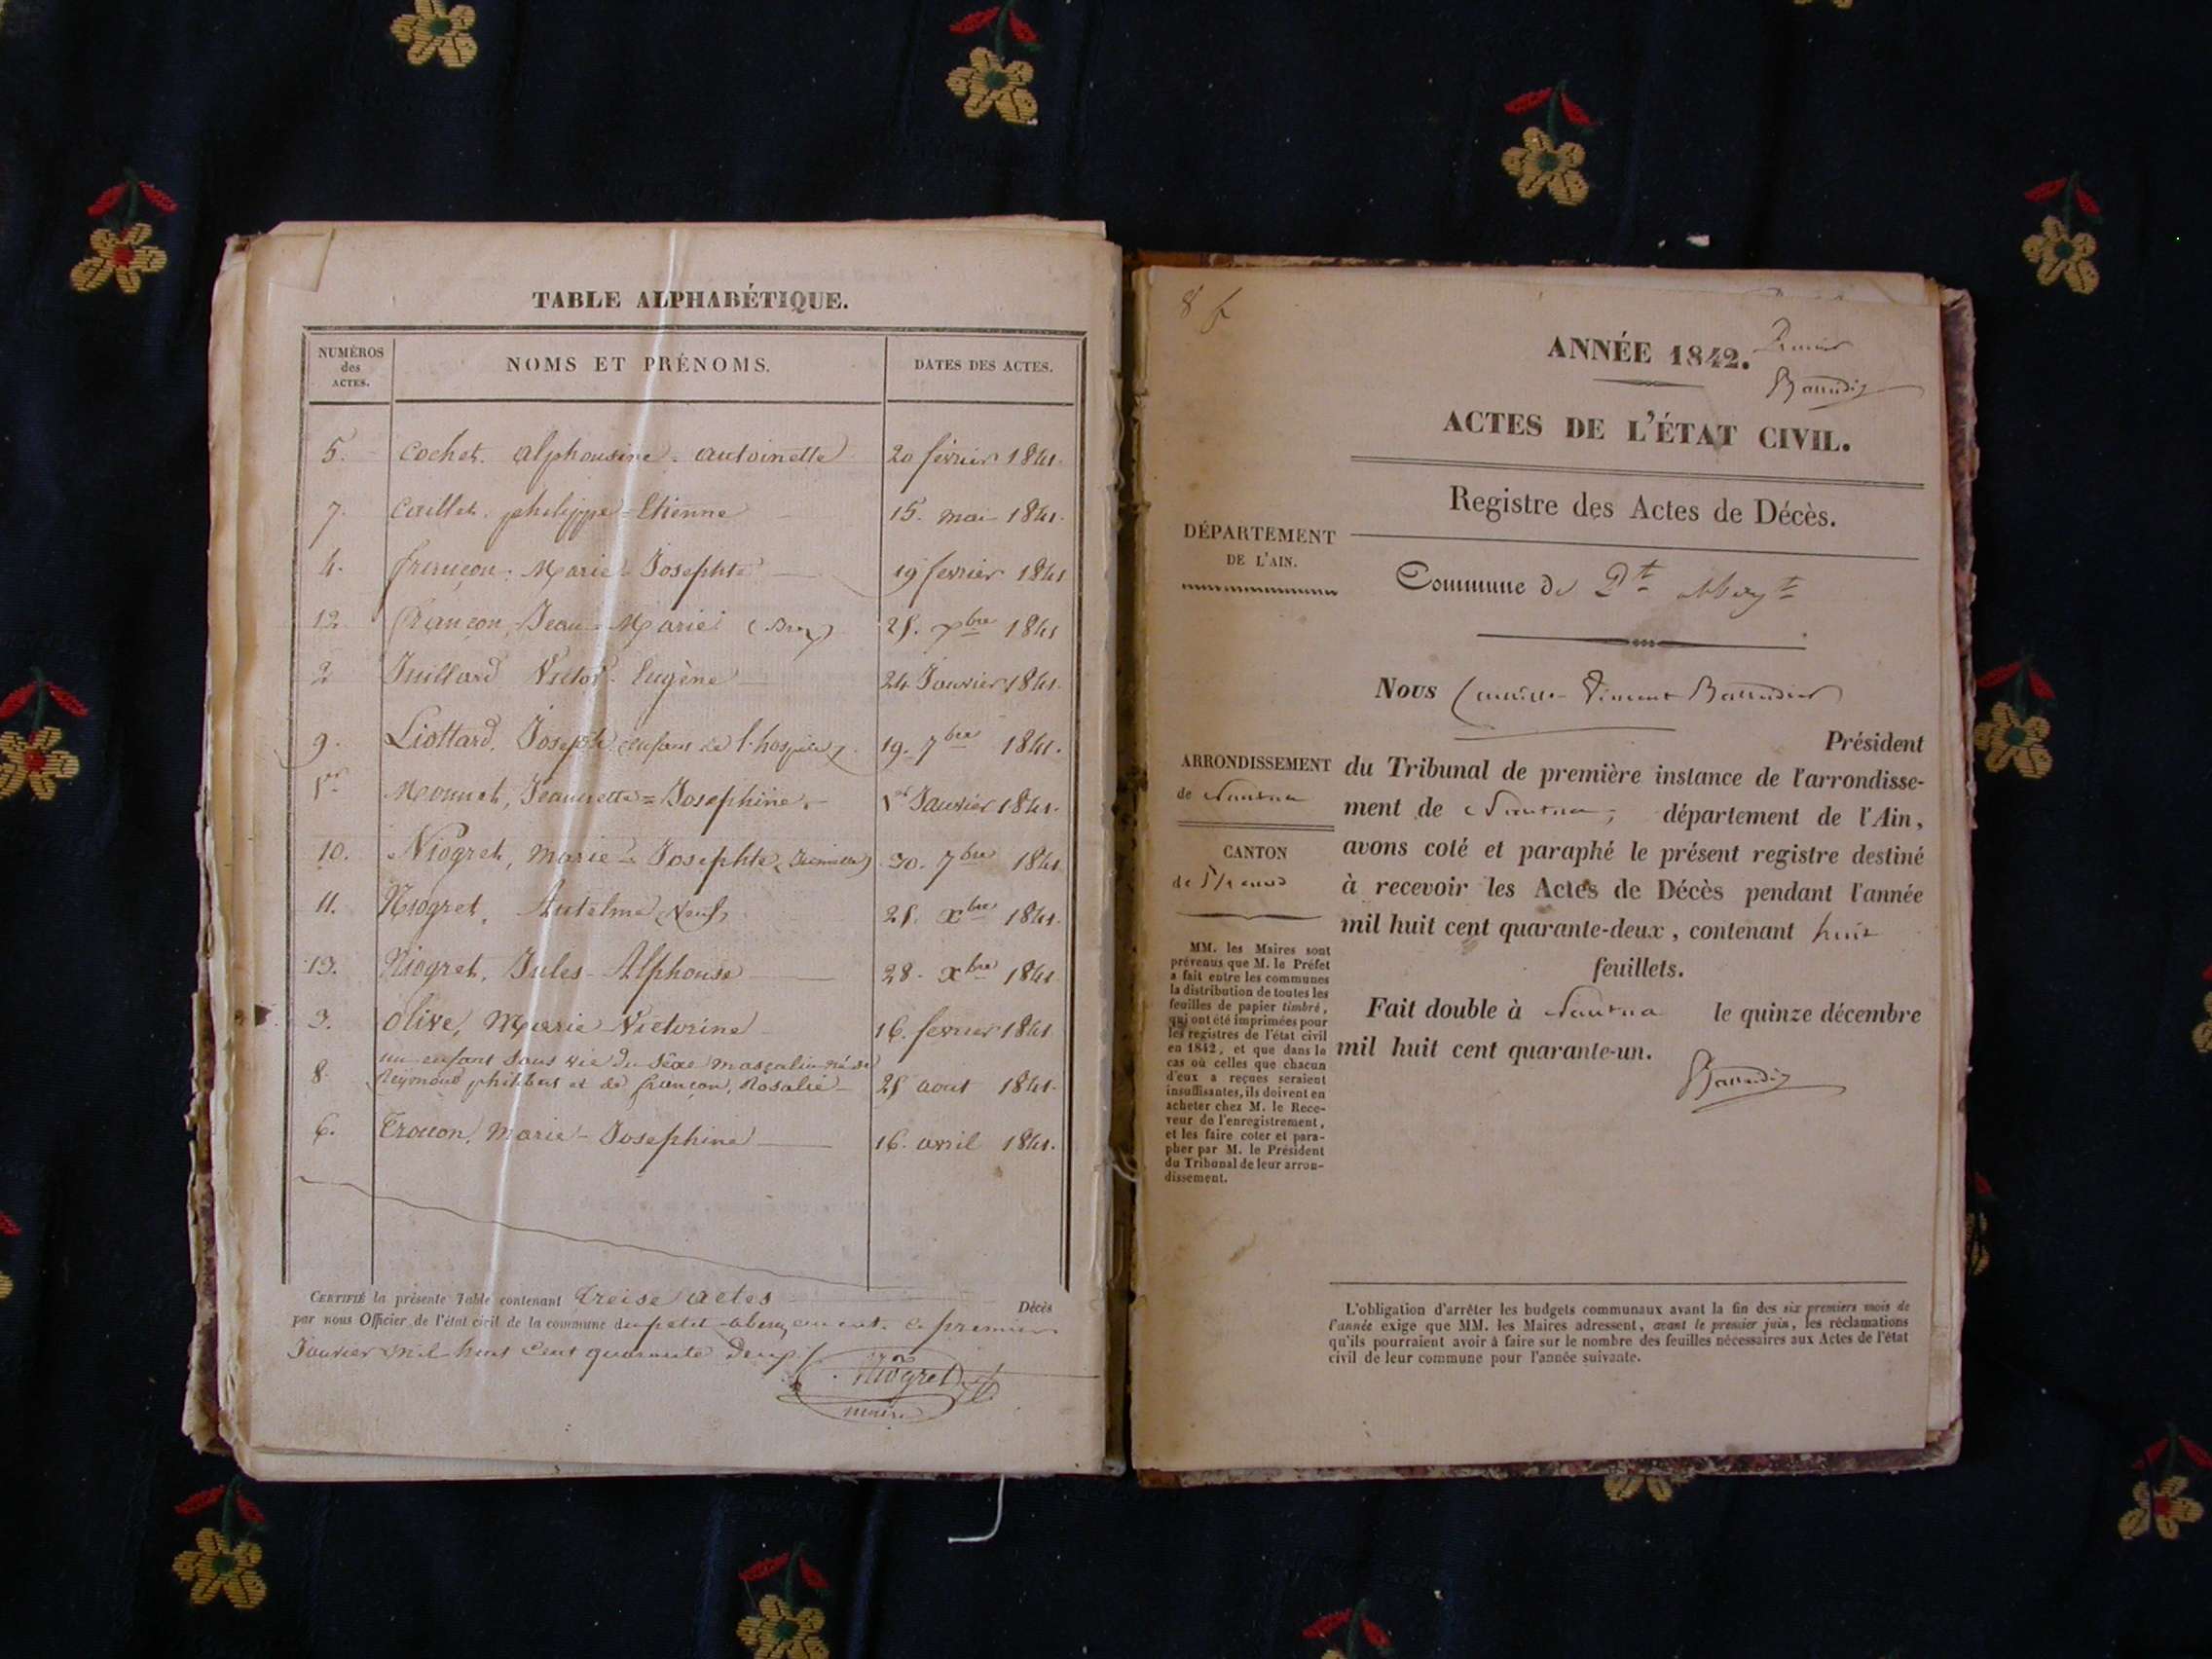 TABLE ALPHABÉTIQUE.
NUMÉROS des ACTES.
NOMS ET PRÉNOMS.
DATES DES ACTES.
5. Cochet. Alphonsine. Antoinette 20 février 1841.
7. Caillet. philippe = Etienne 15. mai 1841.
4. françon. Marie Josephte 19 février 1841
12. françon, Jean-Marie 1841
2 Juillard Victor. Eugène 24 Janvier 1841.
9. Liottard, Joseph enfant de l'hospice 19. 7bre 1841.
1er Monnet, Jeannette = Josephine. 1er Janvier 1841.
10. Niogret, marie = Josephte, 30. 7bre 1841
11. Niogret, Antelme Xbre 1841.
13. Niogret, Jules-Alphonse 28. Xbre 1841.
3. Olive, Marie Victorine 16. fevrier 1841
un enfant sans vie du sèxe masçalin né de
8. Reymond philibert et de françon, Rosalie aout 1841.
6. Marie-Josephine 16. avril 1841.
CERTIFIÉ la présente Table contenant treise actes Décès
par nous Officier de l'état civil de la commune du petit abergement. le premier
Janvier mil huit cent quarante deux
Niogret
maire
8 f
ANNÉE 1842. Premier
ACTES DE L'ÉTAT CIVIL.
Registre des Actes de Décès.
DÉPARTEMENT
DE L'AIN.
Commune de Pt Abergt
Nous Camille Vincent Baudier
Président
ARRONDISSEMENT
de Nantua
CANTON
de
du Tribunal de première instance de l'arrondisse-
ment de Nantua, département de l'Ain,
avons coté et paraphé le présent registre destiné
à recevoir les Actes de Décès pendant l'année
mil huit cent quarante-deux, contenant huit
feuillets.
Fait double à Nantua le quinze décembre
mil huit cent quarante-un.
MM. les Maires sont
prévenus que M. le Préfet
a fait entre les communes
la distribution de toutes les
feuilles de papier timbré,
qui ont été imprimées pour
les registres de l'état civil
en 1842, et que dans le
cas où celles que chacun
d'eux a reçues seraient
insuffisantes, ils doivent en
acheter chez M. le Rece-
veur de l'enregistrement,
et les faire coter et para-
pher par M. le Président
du Tribunal de leur arron-
dissement.
L'obligation d'arrêter les budgets communaux avant la fin des six premiers mois de
l'année exige que MM. les Maires adressent, avant le premier juin, les réclamations
qu'ils pourraient avoir à faire sur le nombre des feuilles nécessaires aux Actes de l'état
civil de leur commune pour l'année suivante.